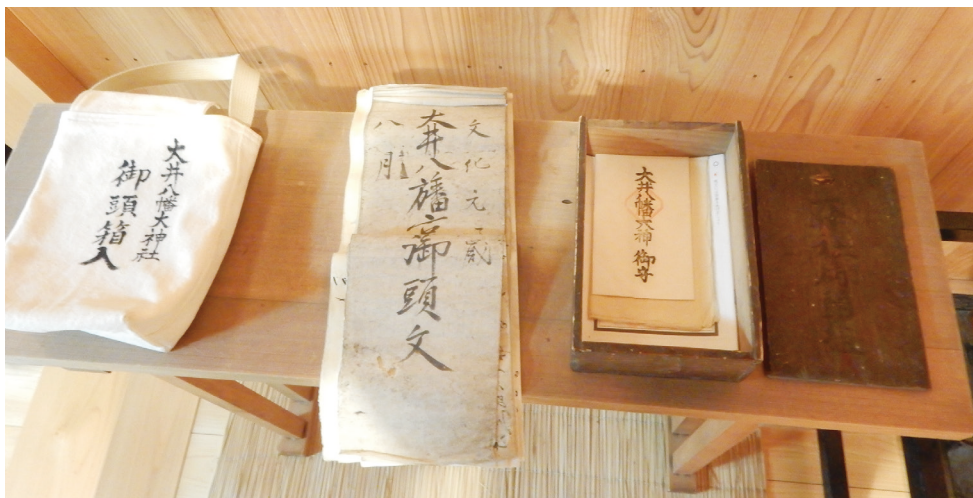 大井八幡大神社
御頭箱入
文化元歳
大井八幡宮御頭文
八月
大井八幡大神 御守